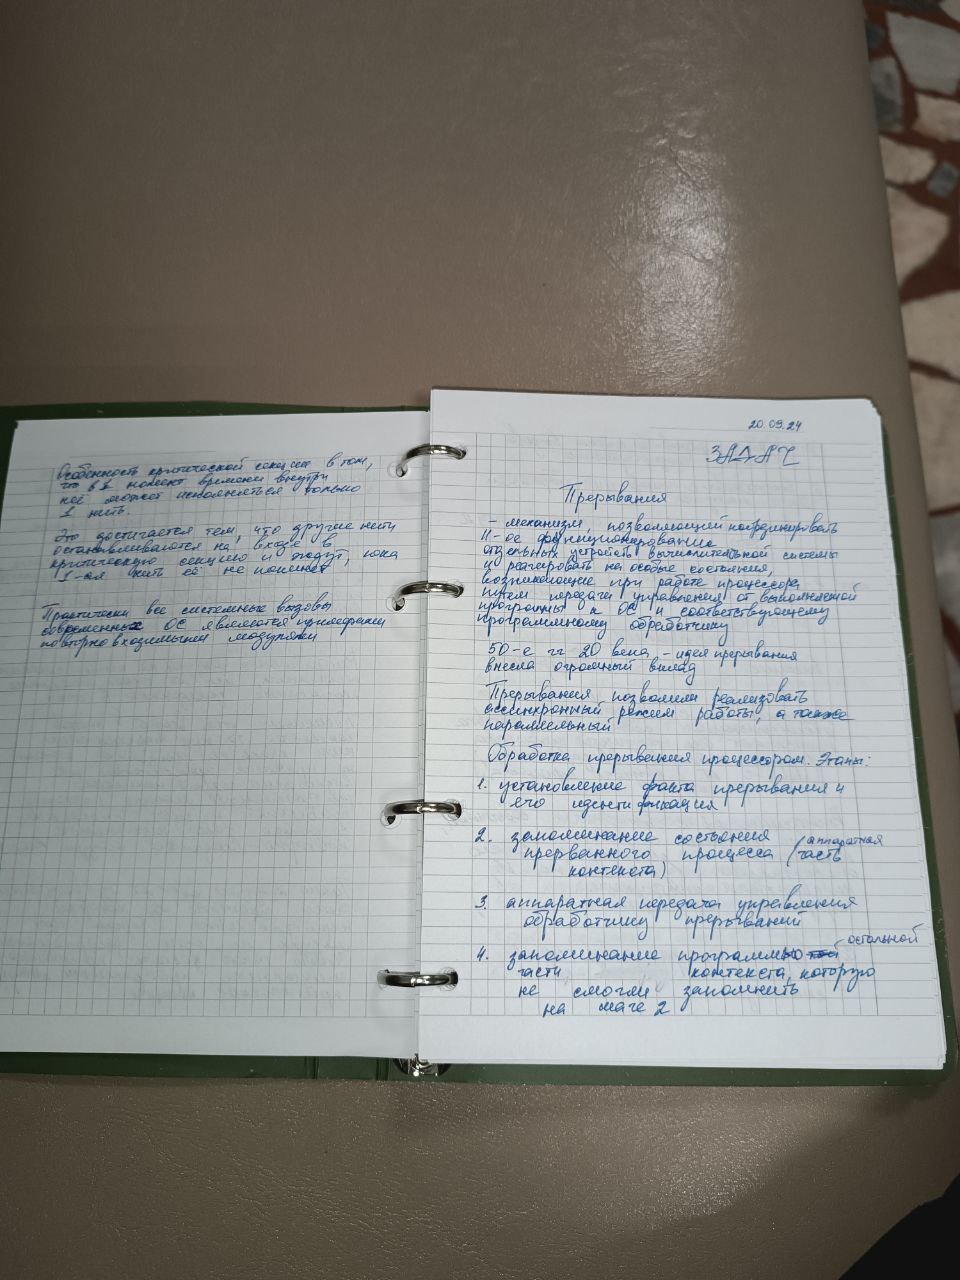 Особенность критической секции в том,
что в 1 момент времени внутри
неё может исполняться только
1 нить.
Это достигается тем, что другие нити
останавливаются на входе в
критическую секцию и ждут, пока
1-ая нить её не покинет
Практически все системные вызовы
современных ОС являются примерами
повторно входимыми модулями
20.09.24
ЗАДАЧ
Прерывания
- механизм, позволяющий координировать
II-ое функционирование
отдельных устройств вычислительной системы
и реагировать на особые состояния,
возникающие при работе процессора
путём передачи управления от выполняемой
программы к ОС и соответствующему
программному обработчику
50-е гг 20 века, - идея прерывания
внесла огромный вклад
Прерывания позволили реализовать
ассинхронный режим работы, а также
параллельный
Обработка прерывания процессором. Этапы:
1. установление факта прерывания и
его идентификация
2. запоминание состояния
прерванного процесса (аппаратная часть
контекста)
3. аппаратная передача управления
обработчику прерываний
4. запоминание программно остальной
части контекста, которую
не смогли запомнить
на шаге 2